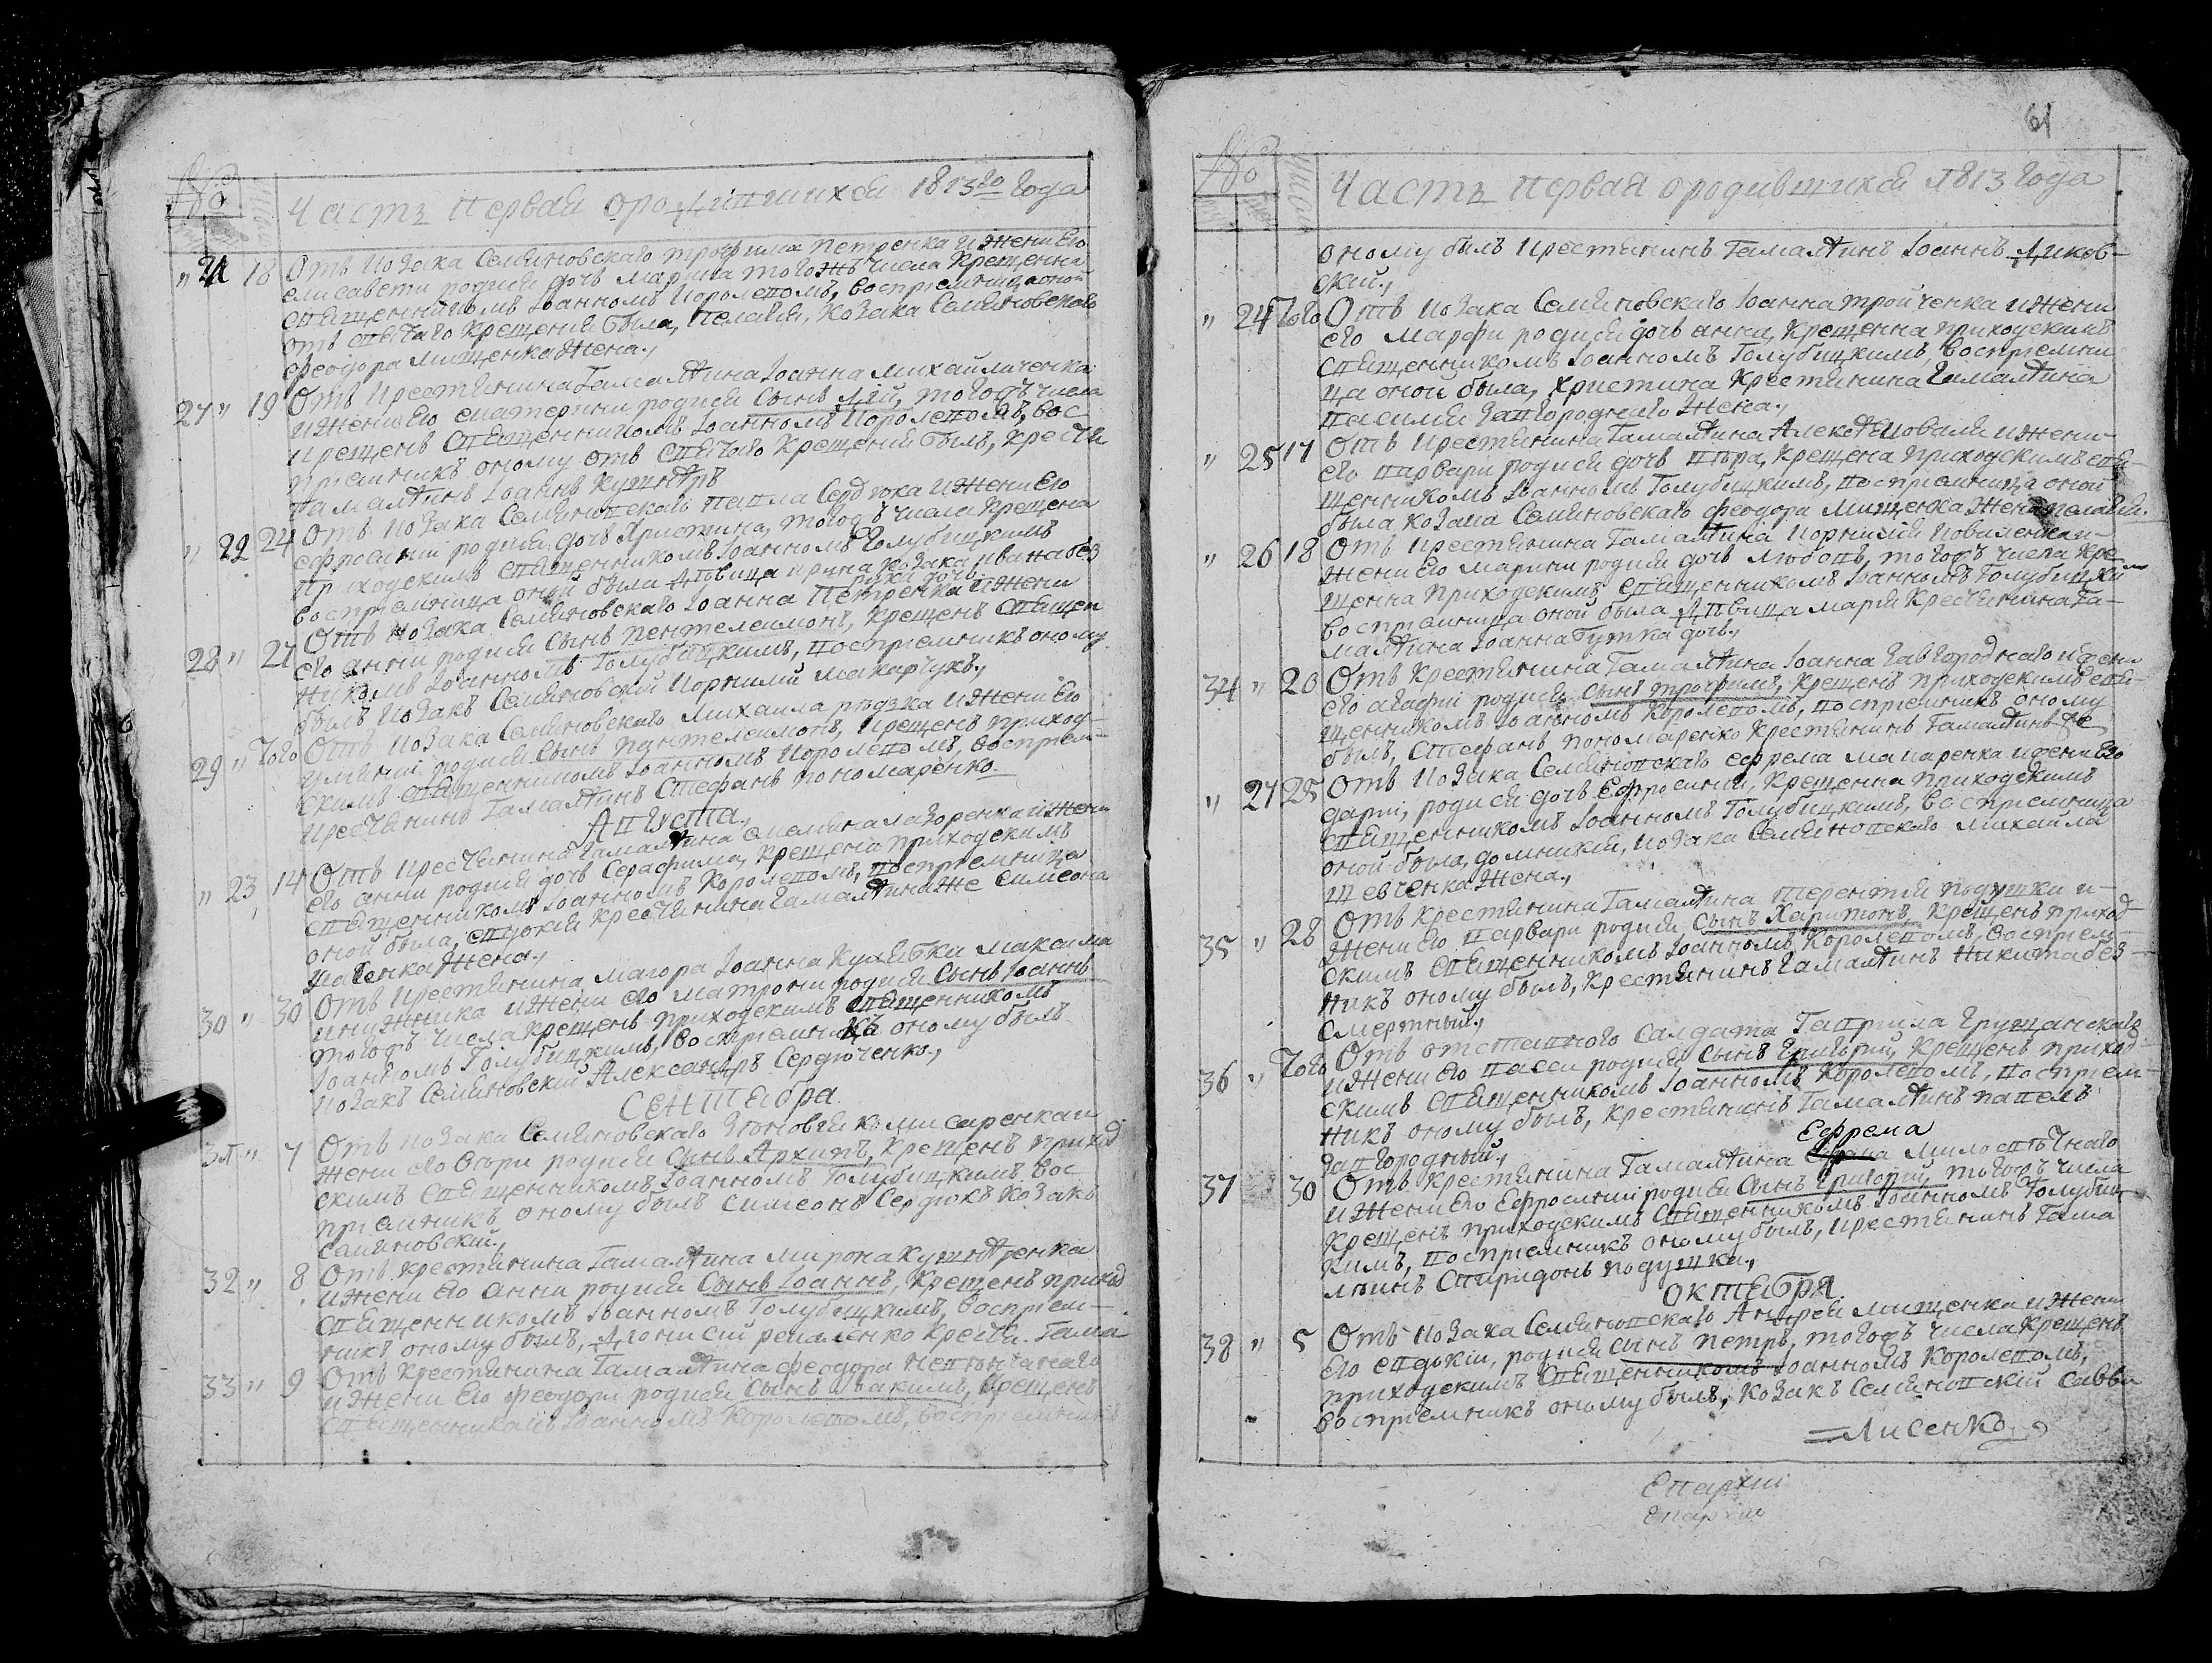 Часть первая о родившихся 1813го года
" 21 18 Отъ козака Семяновскаго Трофима Петренка и жени Его
Елисавети родися дочъ Марина того жъ числа Крещенна
священникомъ Іоанномъ Королевомъ, восприемница оной
отъ святаго Крещения была, Пелагия, козака Семяновскаго
Феодора Мищенка жена.,
27 " 19 Отъ крестянина Гамалѣина Іоанна Михайличенка
и жени Его Екатерини родися Сынъ того жъ числа
крещенъ священникомъ Іоанномъ Королевомъ, вос
приемникъ оному отъ святаго Крещения былъ, крестя
Гамалѣинъ Іоаннъ Кушнѣръ
" 22 24 Отъ козака Семяновскаго Павла Сердюка и жени Его
Ефросинии родися дочъ Христина, тогожъ числа Крещена
приходскимъ священникомъ Іоанномъ Голубицкимъ
восприемница оной была дѣвица Ирина козака Ивана Без
рука дочь
28 " 27 Отъ козака Семяновскаго Іоанна Петренка и жени
его Анни родися Сынъ Пентелеимонъ, крещенъ священ
никомъ Іоанномъ Голубицкимъ, восприемникъ оному
былъ козакъ Семяновский Корнилий Макарчукъ.,
29 " Того Отъ козака Семяновскаго Михаила и жени Его
родися Сынъ Пунтелеимонъ, крещенъ приход-
скимъ священникомъ Іоанномъ Королевомъ, восприем-
крестянинъ Гамалѣинъ Стефанъ Пономаренко.
Августа.,
" 23 14 Отъ крестянина Гамалѣина и жени
его Анни родися дочъ Серафима, крещена приходскимъ
священникомъ Іоанномъ Королевомъ, восприемница
оной была, Евдокия крестянина Гамалѣина же Симеона
жена.,
30 " 30 Отъ крестянина маіора Іоанна Максима
и жени его Матрони родися Сынъ Іоаннъ
тогожъ числа крещенъ приходскимъ священникомъ
Іоанномъ Голубицкимъ, восприемникъ оному былъ
козакъ Семяновский Александръ Сердюченко.,
Сентября.
31 " 7 Отъ козака Семяновскаго Зѣновия Комисаренка и
жени его родися Сынъ Архипъ, крещенъ приход
скимъ священникомъ Іоанномъ Голубицкимъ. вос
приемникъ оному былъ Симеонъ Сердюкъ козакъ
Семяновский.,
32 " 8 Отъ крестянина Гамалѣина Мирона Кушнѣренка
и жени Его Анни родися Сынъ Іоаннъ, крещенъ приход
священникомъ Іоанномъ Голубицкимъ, восприем-
никъ оному былъ, Дионисий крестя. Гама
33 " 9 Отъ крестянина Гамалѣина Феодора
и жени Его Феодори родися Сынъ Иоакимъ, крещенъ
священникомъ Іоанномъ Королевомъ, восприемникъ
61
Часть первая о родившихся 1813 года
оному былъ крестянинъ Гамалѣинъ Іоаннъ Диков-
ский.,
" 24 Того Отъ козака Семяновскаго Іоанна Тройченка и жени
его Марфи родися дочъ Анна, крещенна приходскимъ
священникомъ Іоанномъ Голубицкимъ, восприемни
ца оной была, Христина крестянина Гамалѣина
Василия Завгороднаго жена.,
" 25 17 Отъ крестянина Гамалѣина Алексѣя Коваля и жени
его Варвари родися дочъ Вѣра, крещена приходскимъ свя-
щенникомъ Іоанномъ Голубицкимъ, восприемница оной
была козака Семяновскаго Феодора Мищенка жена Пелагия.
" 26 18 Отъ крестянина Гамалѣина Корнилия Коваленка и-
жени Его Марини родися дочъ Любовъ, тогожъ числа кре
щенна приходскимъ священникомъ Іоанномъ Голубицкимъ
восприемница оной была дѣвица Мария крестянина Га-
малѣина Іоанна Гутка дочъ.,
34 " 20 Отъ крестянина Гамалѣина Іоанна Завгороднаго и жени
его Агафии родися Сынъ Трофимъ, крещенъ приходскимъ свя-
щенникомъ Іоанномъ Королевомъ, восприемникъ оному
былъ, Стефанъ Пономаренко крестянинъ Гамалѣинъ же
" 27 25 Отъ козака Семяновскаго Ефрема Макаренка и жени Его
Дарии, родися дочъ Ефросиния, крещенна приходскимъ
священникомъ Іоанномъ Голубицкимъ, восприемница
оной была, Домникия, козака Семяновскаго Михайла
Шевченка жена.,
35 " 28 Отъ крестянина Гамалѣина Терентия Подушки и-
жени Его Варвари родися, Сынъ Харитонъ, крещенъ приход
скимъ священникомъ Іоанномъ Королевомъ, восприем-
никъ оному былъ, крестянинъ Гамалѣинъ Никита Без-
смертный.,
36 " Того Отъ отставного Салдата Гаврила Грущанскаго
и жени Его Васси родися Сынъ Григорий, крещенъ приход-
скимъ священникомъ Іоанномъ Королевомъ, восприем-
никъ оному былъ, крестянинъ Гамалѣинъ Павелъ
Завгородный.,
Ефрема
37 30 Отъ крестянина Гамалѣина Милосѣвчнаго
и жени Его Ефросинии родися Сынъ Григорий, тогожъ числа
крещенъ приходскимъ священникомъ Іоанномъ Голубиц
кимъ, восприемникъ оному былъ, крестянинъ Гама
лѣинъ Спиридонъ Подушка.,
Октября.
38 " 5 Отъ козака Семяновскаго Андрея Мищенка и жени
Его Евдокии, родися Сынъ Петръ, тогожъ числа крещенъ
приходскимъ священникомъ Іоанномъ Королевомъ,
восприемникъ оному былъ, козакъ Семяновский Савва
Лисенко
Епархіи
Епархіи